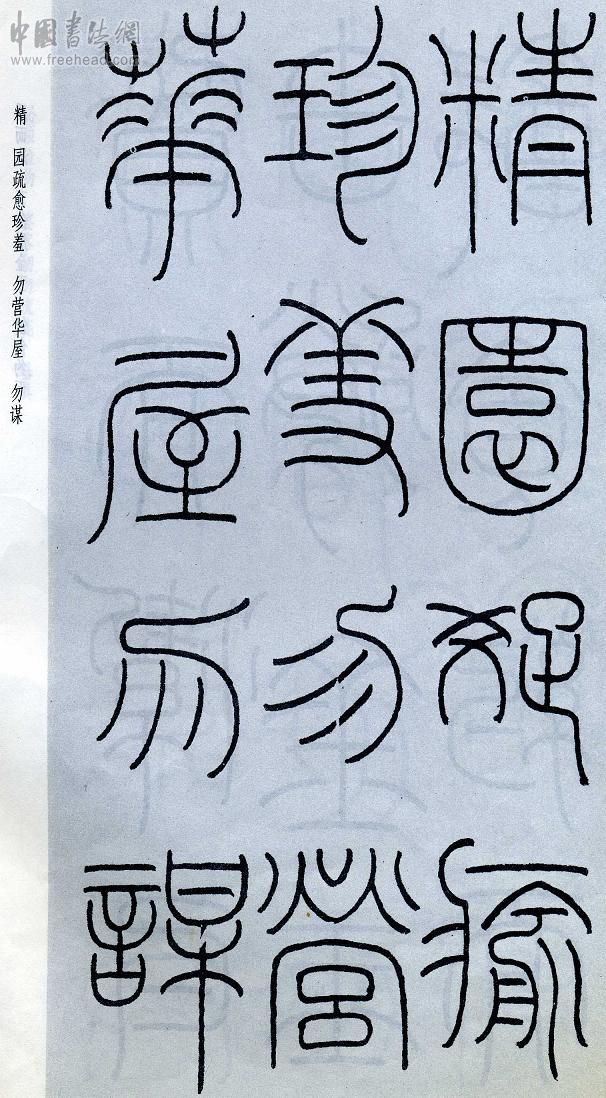 中國書法網
www.freehead.com
精園疏瘉
珍羞勿營
華屋勿謀
精 园疏愈珍羞 勿营华屋 勿谋